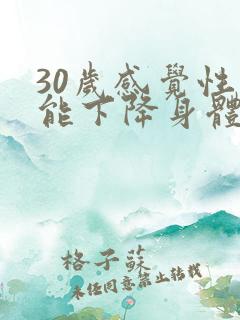 30歲感覺性
能下降身體
格子蘇
未经同意禁止转载